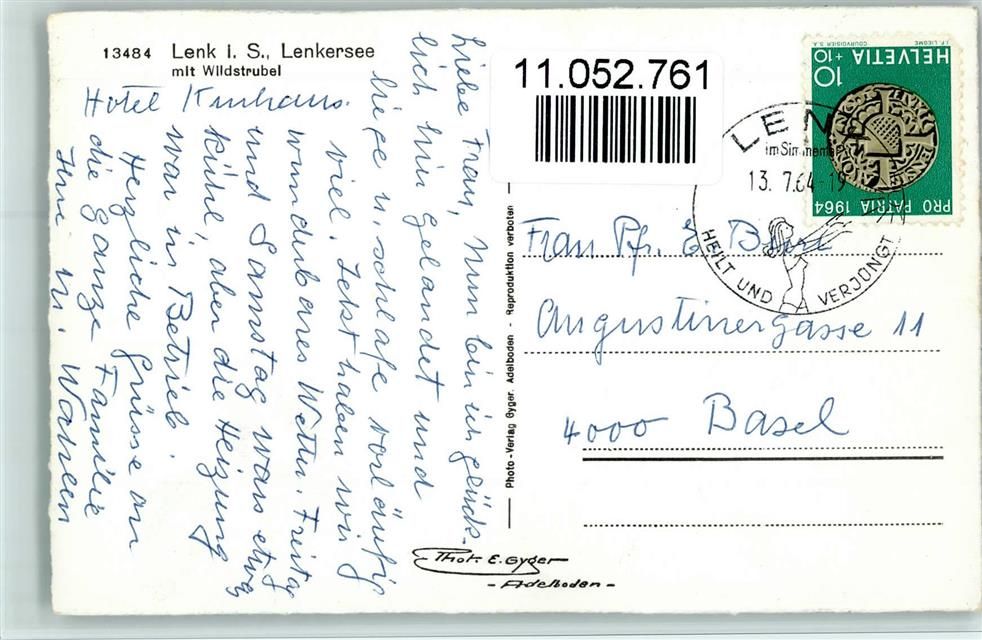 13484 Lenk i. S., Lenkersee
mit Wildstrubel
Hotel Kurhaus.
Liebe Frau, nun bin ich glück-
lich hin gelandet und
liege u. schlafe vorläufig
viel. Jetzt haben wir
wunderbares Wetter. Freitag
und Samstag wars etwas
kühl, aber die Heizung
war in Betrieb.
Herzliche Grüsse an
die ganze Familie
Ihre M.
11.052.761
HELVETIA
10
+10
COURVOISIER S.A.
PRO PATRIA 1964
LENK
im Simmental
13. 7.64-19
HEILT UND VERJÜNGT
Frau Pfr. E.
Augustinergasse 11
4000 Basel
Photo-Verlag Gyger, Adelboden - Reproduktion verboten
Phot. E. Gyger
- Adelboden -